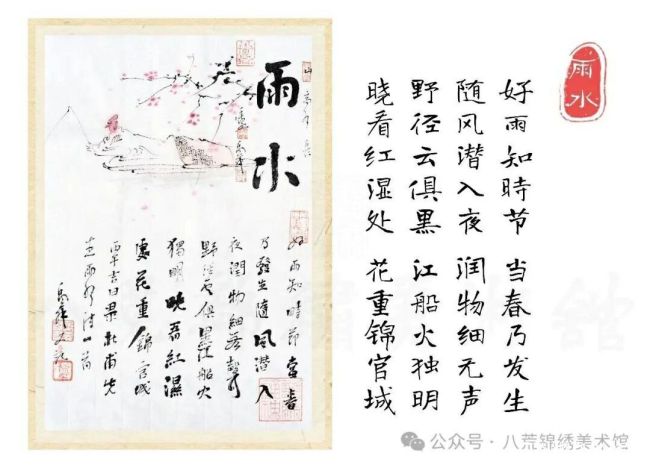 雨水
好雨知時節當春
乃發生隨風潛入
夜潤物細無聲
野徑雲俱黑江船火
獨明曉看紅濕
處花重錦官城
丙午吉日录杜甫先
雨水
好雨知時节 当春乃发生
随风潜入夜 润物细无声
野径云俱黑 江船火独明
晓看红湿处 花重锦官城
公众号·八荒锦绣美术馆